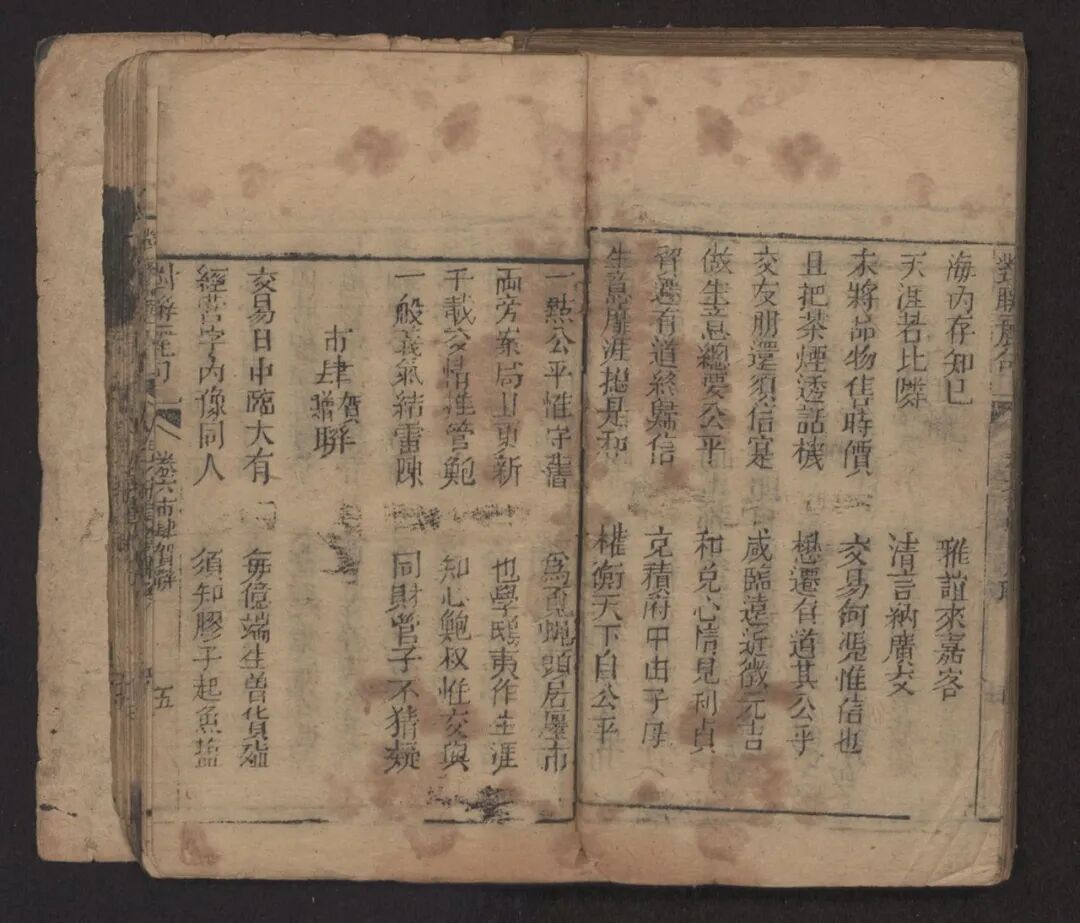 海內存知己
天涯若比隣
雅誼來嘉客
清言納廣交
未將品物售時價
且把茶煙透話機
交易何憑惟信也
懋遷有道其公乎
交友朋還須信寔
做生意總要公平
咸臨遠近徵元吉
和兌心情見利貞
貿遷有道終歸信
生意靡涯揔是和
克積府中由子母
權衡天下自公平
一㸃公平惟守舊
両旁案局更新
為覓蝇頭居墨市
也學鴟夷作生涯
千載交情推管鮑
一般義氣結雷陳
知心鮑叔惟交與
同財管子不猜疑
市肆賀贈聯
交易日中臨大有
經書字內像同人
每億端生曽貨殖
須知膠子起魚塩
卷六市肆賀聯
五